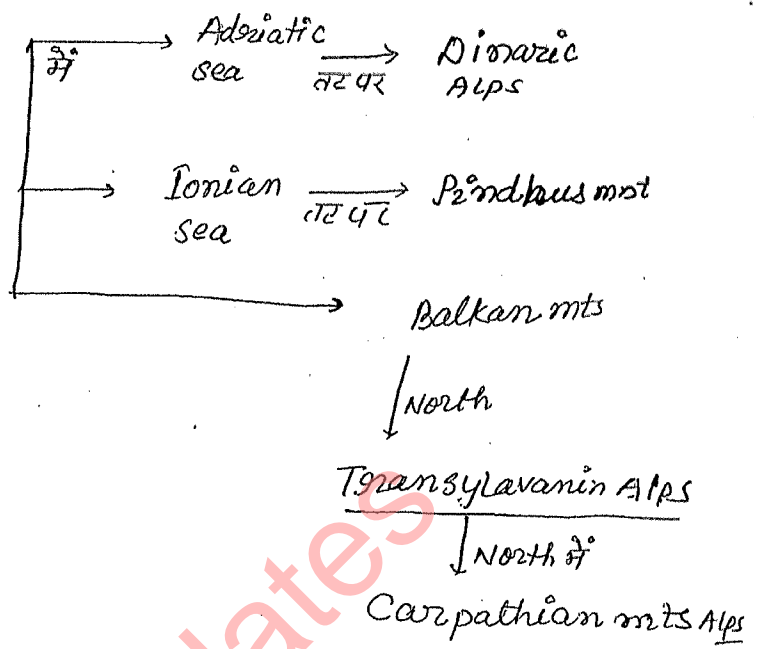 में
Adriatic
sea
तट पर
Dinaric
ALPS
Ionian
sea
तट पर
Pindhus mnt
Balkan mts
North
Transylavanin Alps
North में
Carpathian mts Alps
dates